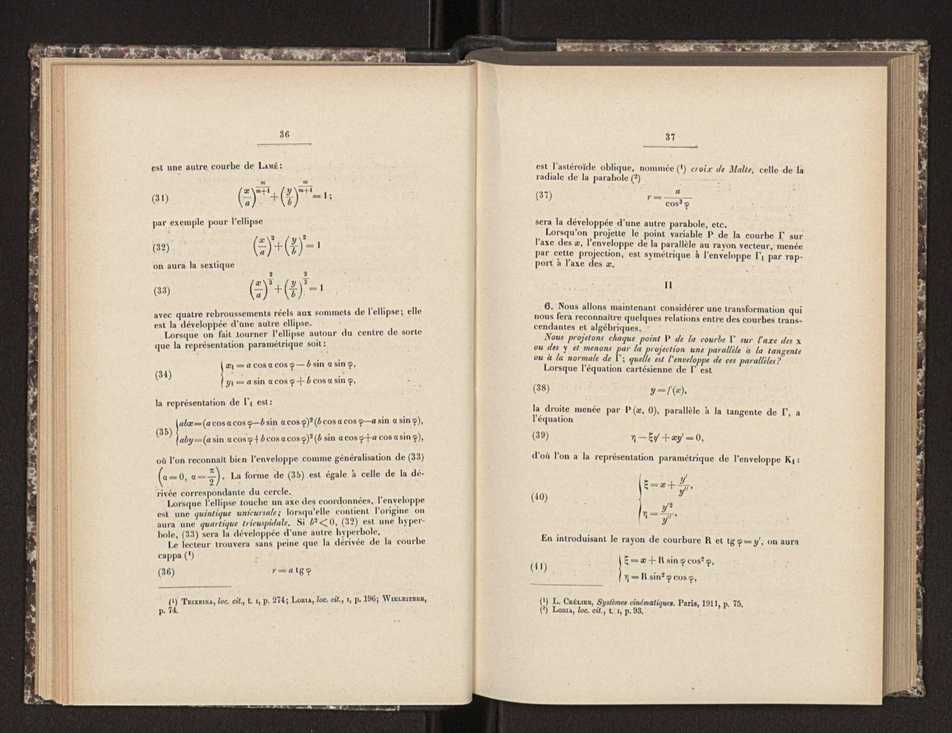 36
est une autre courbe de LAMÉ :
(31) (x/a)^{m/(m+1)} + (y/b)^{m/(m+1)} = 1 ;
par exemple pour l'ellipse
(32) (x/a)^2 + (y/b)^2 = 1
on aura la sextique
(33) (x/a)^{2/3} + (y/b)^{2/3} = 1
avec quatre rebroussements réels aux sommets de l'ellipse ; elle
est la développée d'une autre ellipse.
Lorsque on fait tourner l'ellipse autour du centre de sorte
que la représentation paramétrique soit :
(34) { x₁ = a cos α cos φ — b sin α sin φ,
y₁ = a sin α cos φ + b cos α sin φ,
la représentation de Γ₁ est :
(35) { abx=(a cos α cos φ—b sin α cos φ)²(b cos α cos φ—a sin α sin φ),
aby=(a sin α cos φ+b cos α cos φ)²(b sin α cos φ+a cos α sin φ),
où l'on reconnaît bien l'enveloppe comme généralisation de (33)
(α=0, α=—π/2). La forme de (35) est égale à celle de la dé-
rivée correspondante du cercle.
Lorsque l'ellipse touche un axe des coordonnées, l'enveloppe
est une quintique unicursale ; lorsqu'elle contient l'origine on
aura une quartique tricuspidale. Si b²<0, (32) est une hyper-
bole, (33) sera la développée d'une autre hyperbole.
Le lecteur trouvera sans peine que la dérivée de la courbe
cappa (¹)
(36) r = a tg φ
(¹) TEIXEIRA, loc. cit., t. I, p. 274 ; LORIA, loc. cit., I, p. 196 ; WIELEITNER,
p. 74.
37
est l'astéroïde oblique, nommée (¹) croix de Malte, celle de la
radiale de la parabole (²)
(37) r = a / cos³ φ
sera la développée d'une autre parabole, etc.
Lorsqu'on projette le point variable P de la courbe Γ sur
l'axe des x, l'enveloppe de la parallèle au rayon vecteur, menée
par cette projection, est symétrique à l'enveloppe Γ₁ par rap-
port à l'axe des x.
II
6. Nous allons maintenant considérer une transformation qui
nous fera reconnaître quelques relations entre des courbes trans-
cendantes et algébriques.
Nous projetons chaque point P de la courbe Γ sur l'axe des x
ou des y et menons par la projection une parallèle à la tangente
ou à la normale de Γ ; quelle est l'enveloppe de ces parallèles ?
Lorsque l'équation cartésienne de Γ est
(38) y = f (x),
la droite menée par P (x, 0), parallèle à la tangente de Γ, a
l'équation
(39) η — ξy' + xy' = 0,
d'où l'on a la représentation paramétrique de l'enveloppe K₁ :
(40) { ξ = x + y'/y'',
η = y'²/y''.
En introduisant le rayon de courbure R et tg φ = y', on aura
(41) { ξ = x + R sin φ cos² φ,
η = R sin² φ cos φ,
(¹) L. CRÉLIER, Systèmes cinématiques. Paris, 1911, p. 75.
(²) LORIA, loc. cit., t. I, p. 93.